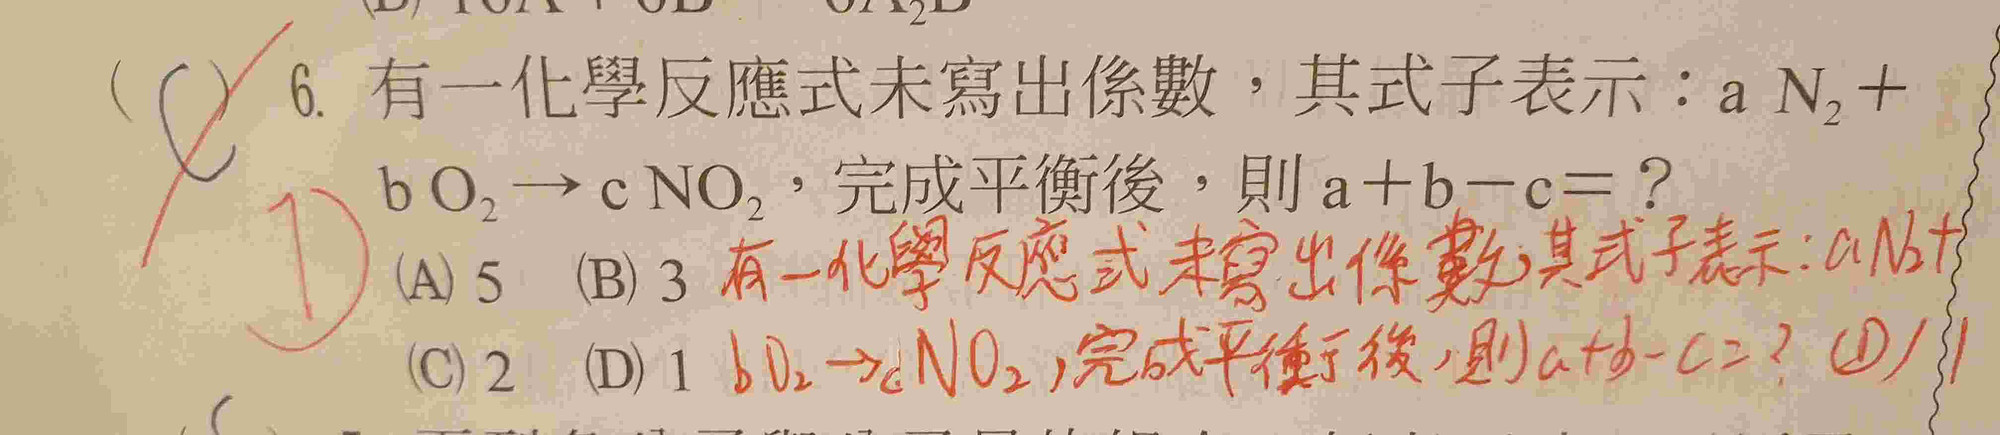 (C) 6. 有一化學反應式未寫出係數，其式子表示：a N₂＋
D b O₂→c NO₂，完成平衡後，則a＋b－c＝？
(A) 5 (B) 3 有一化學反應式未寫出係數，其式子表示：aN₂+
(C) 2 (D) 1 bO₂→cNO₂，完成平衡後，則a+b-c=？(D) 1